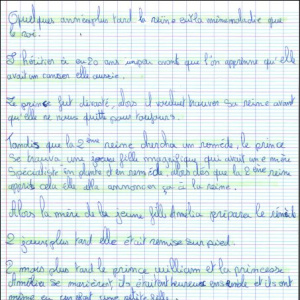 Quelques années plus tard la reine eut la même maladie que
le roi.
L'héritier a eu 20 ans un peu avant que l'on apprenne qu'elle
avait un cancer elle aussi.
Le prince fut dévasté, alors il voulut trouver sa reine avant
qu'elle ne nous quitte pour toujours.
Tandis que la 2ème reine chercha un remède, le prince
se trouva une jeune fille magnifique qui avait une mère
spécialiste en plants et en remède, alors dès que la 2ème reine
apprit cela elle alla annoncer ça à la reine.
Alors la mère de la jeune fille Amélia prépara le remède
2 jours plus tard elle était remise sur pied.
2 mois plus tard le prince william et la princesse
Amélia se marièrent, ils étaient heureux ensemble et ils ont
même eu une petite fille.